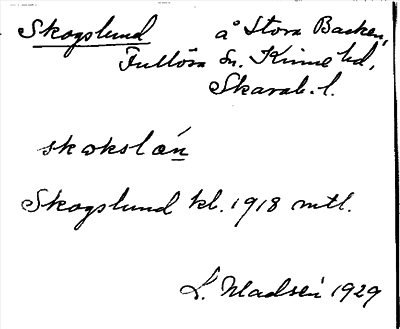 Skogslund å Stora Backen,
Fullösa Sn. Kinne hd,
Skarab. l.
skɔkslæn
Skogslund kl. 1918 mtl.
L. Madsen 1929